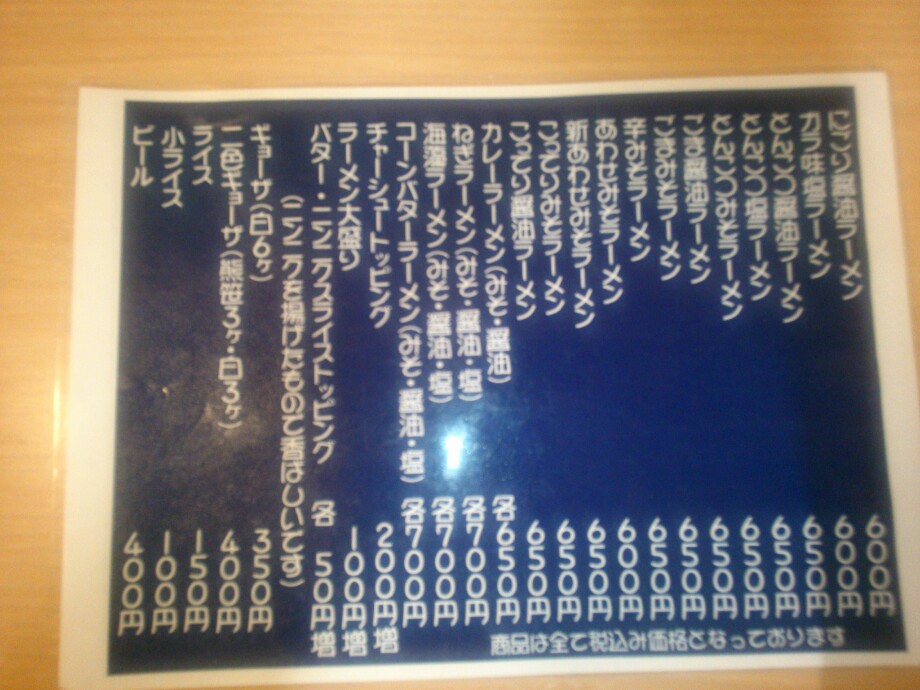 にごり醤油ラーメン 600円
ガラ味塩ラーメン 600円
とんこつ醤油ラーメン 650円
とんこつ塩ラーメン 650円
とんこつみそラーメン 650円
ごま醤油ラーメン 650円
ごまみそラーメン 650円
辛みそラーメン 650円
あわせみそラーメン 600円
新あわせみそラーメン 650円
こってりみそラーメン 650円
こってり醤油ラーメン 650円
カレーラーメン(みそ・醤油) 各650円
ねぎラーメン(みそ・醤油・塩) 各700円
海藻ラーメン(みそ・醤油・塩) 各700円
コーンバターラーメン(みそ・醤油・塩) 各700円
チャーシュートッピング 200円増
ラーメン大盛り 100円増
バター・ニンニクスライストッピング 各50円増
(ニンニクを揚げたもので香ばしいです)
ギョーザ(白6ヶ) 350円
二色ギョーザ(熊笹3ヶ・白3ヶ) 400円
ライス 150円
小ライス 100円
ビール 400円
商品は全て税込み価格となっております